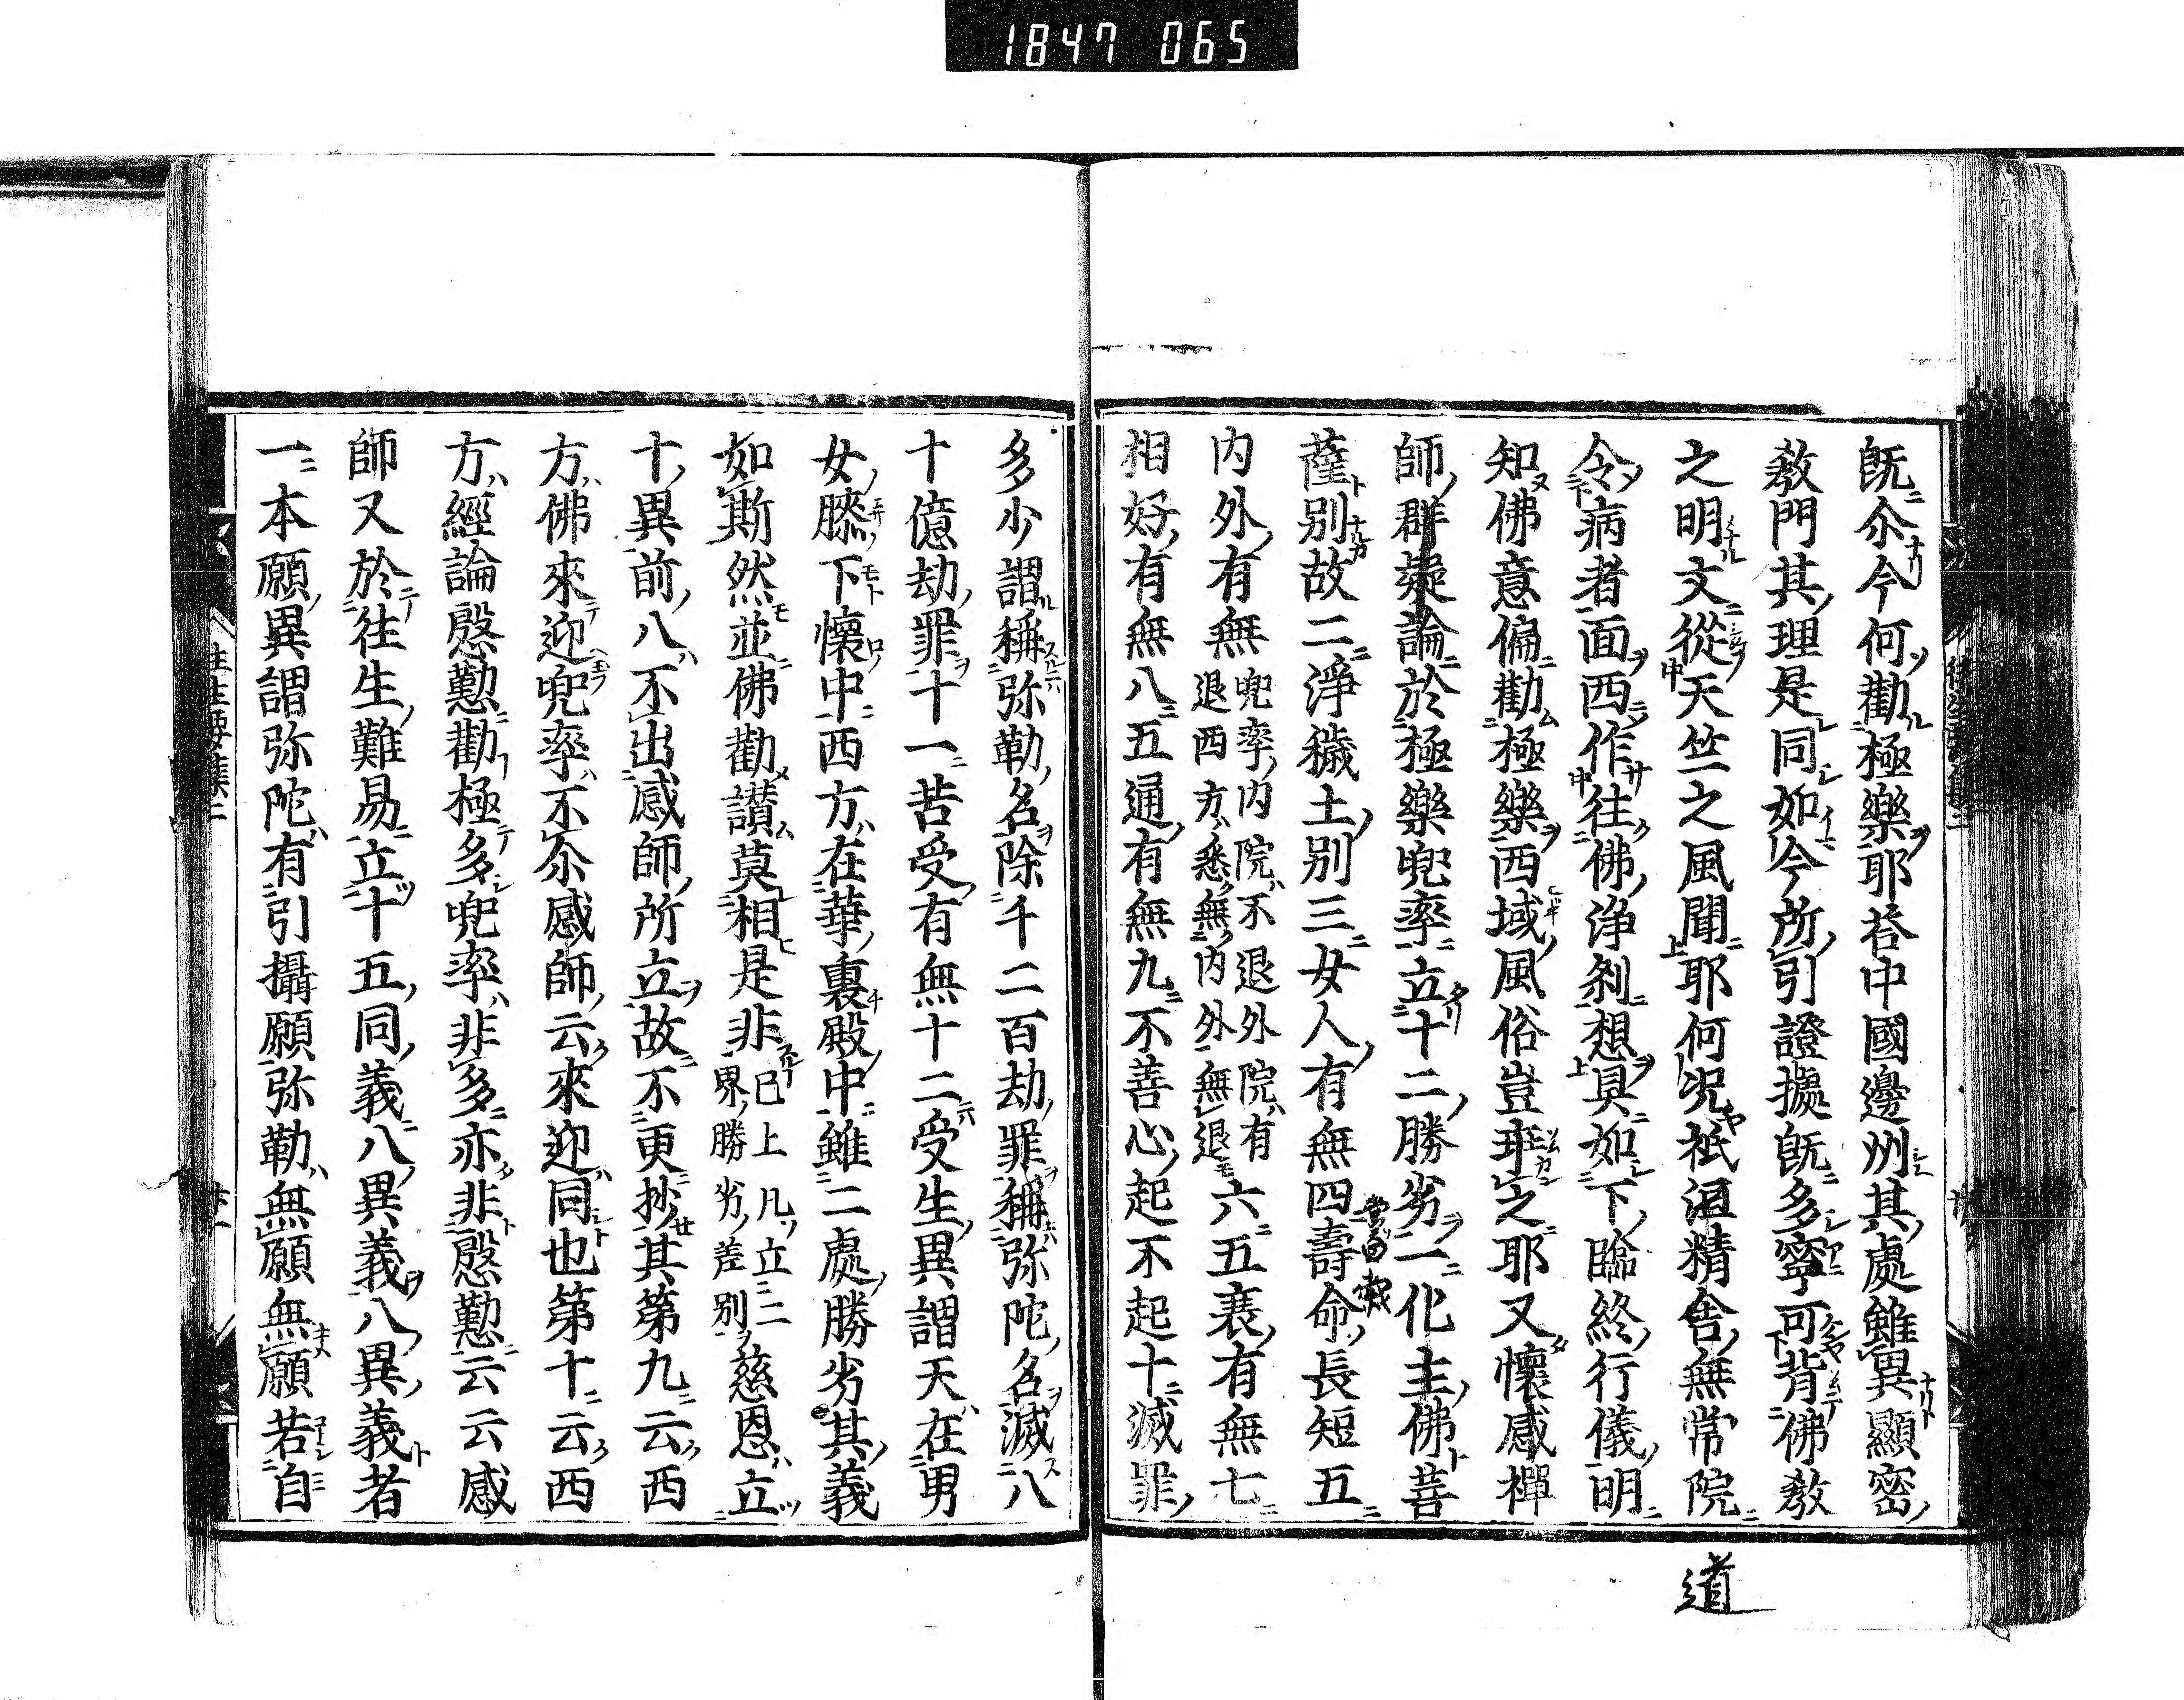 1847 065
既尒今何勸極樂耶荅中國邊州其處雖異顯密
教門其理是同如今所引證據既多寧可背佛教
之明文從天竺之風聞耶何况祇洹精舎無常院
令病者面西作往佛浄刹想具如下臨終行儀明
知佛意偏勸極樂西域風俗豈玕之耶又懷感禪
師群疑論於極樂兜率立十二勝劣一化主佛菩
薩別故二淨穢土別三女人有無四壽命長短五
内外有無兜率内院不退外院有退西方悉無内外無退六五衰有無七
相好有無八五通有無九不善心起不起十滅罪
多少謂稱弥勒名除千二百劫罪稱弥陀名滅八
十億劫罪十一苦受有無十二受生異謂天在男
女膝下懷中西方在華裏殿中雖二處勝劣其義
如斯然並佛勸讃莫相是非已上凡立二界勝劣差別慈恩立
十異前八不出感師所立故不更抄其第九云西
方佛來迎兜率不尒感師云來迎同也第十云西
方經論慇懃勸極多兜率非多亦非慇懃云云感
師又於往生難易立十五同義八異義八異義者
一本願異謂弥陀有引攝願弥勒無願無願若自
道